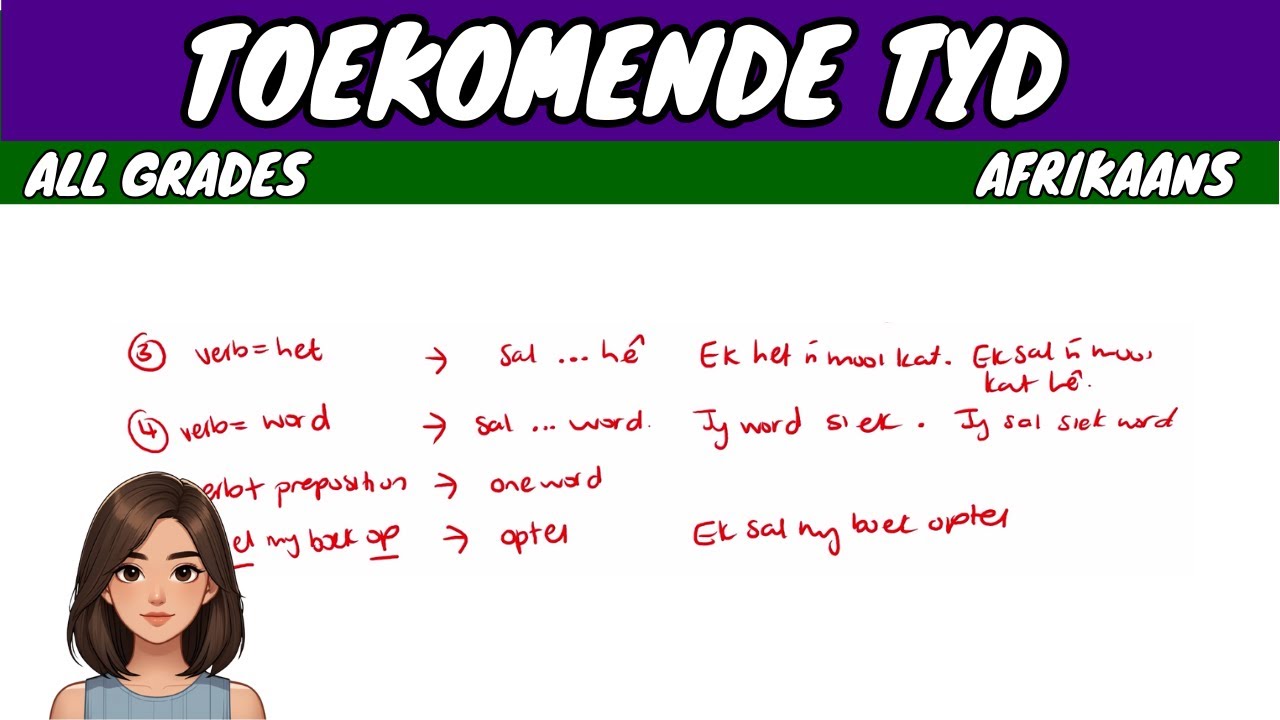 TOEKOMENDE TYD
ALL GRADES AFRIKAANS
③ verb = het → sal ... hê Ek het ń mooi kat. Ek sal ń mooi
kat hê.
④ verb = word → sal ... word. Jy word siek. Jy sal siek word
erb + preposition → one word
el my boek op → optel Ek sal my boek optel